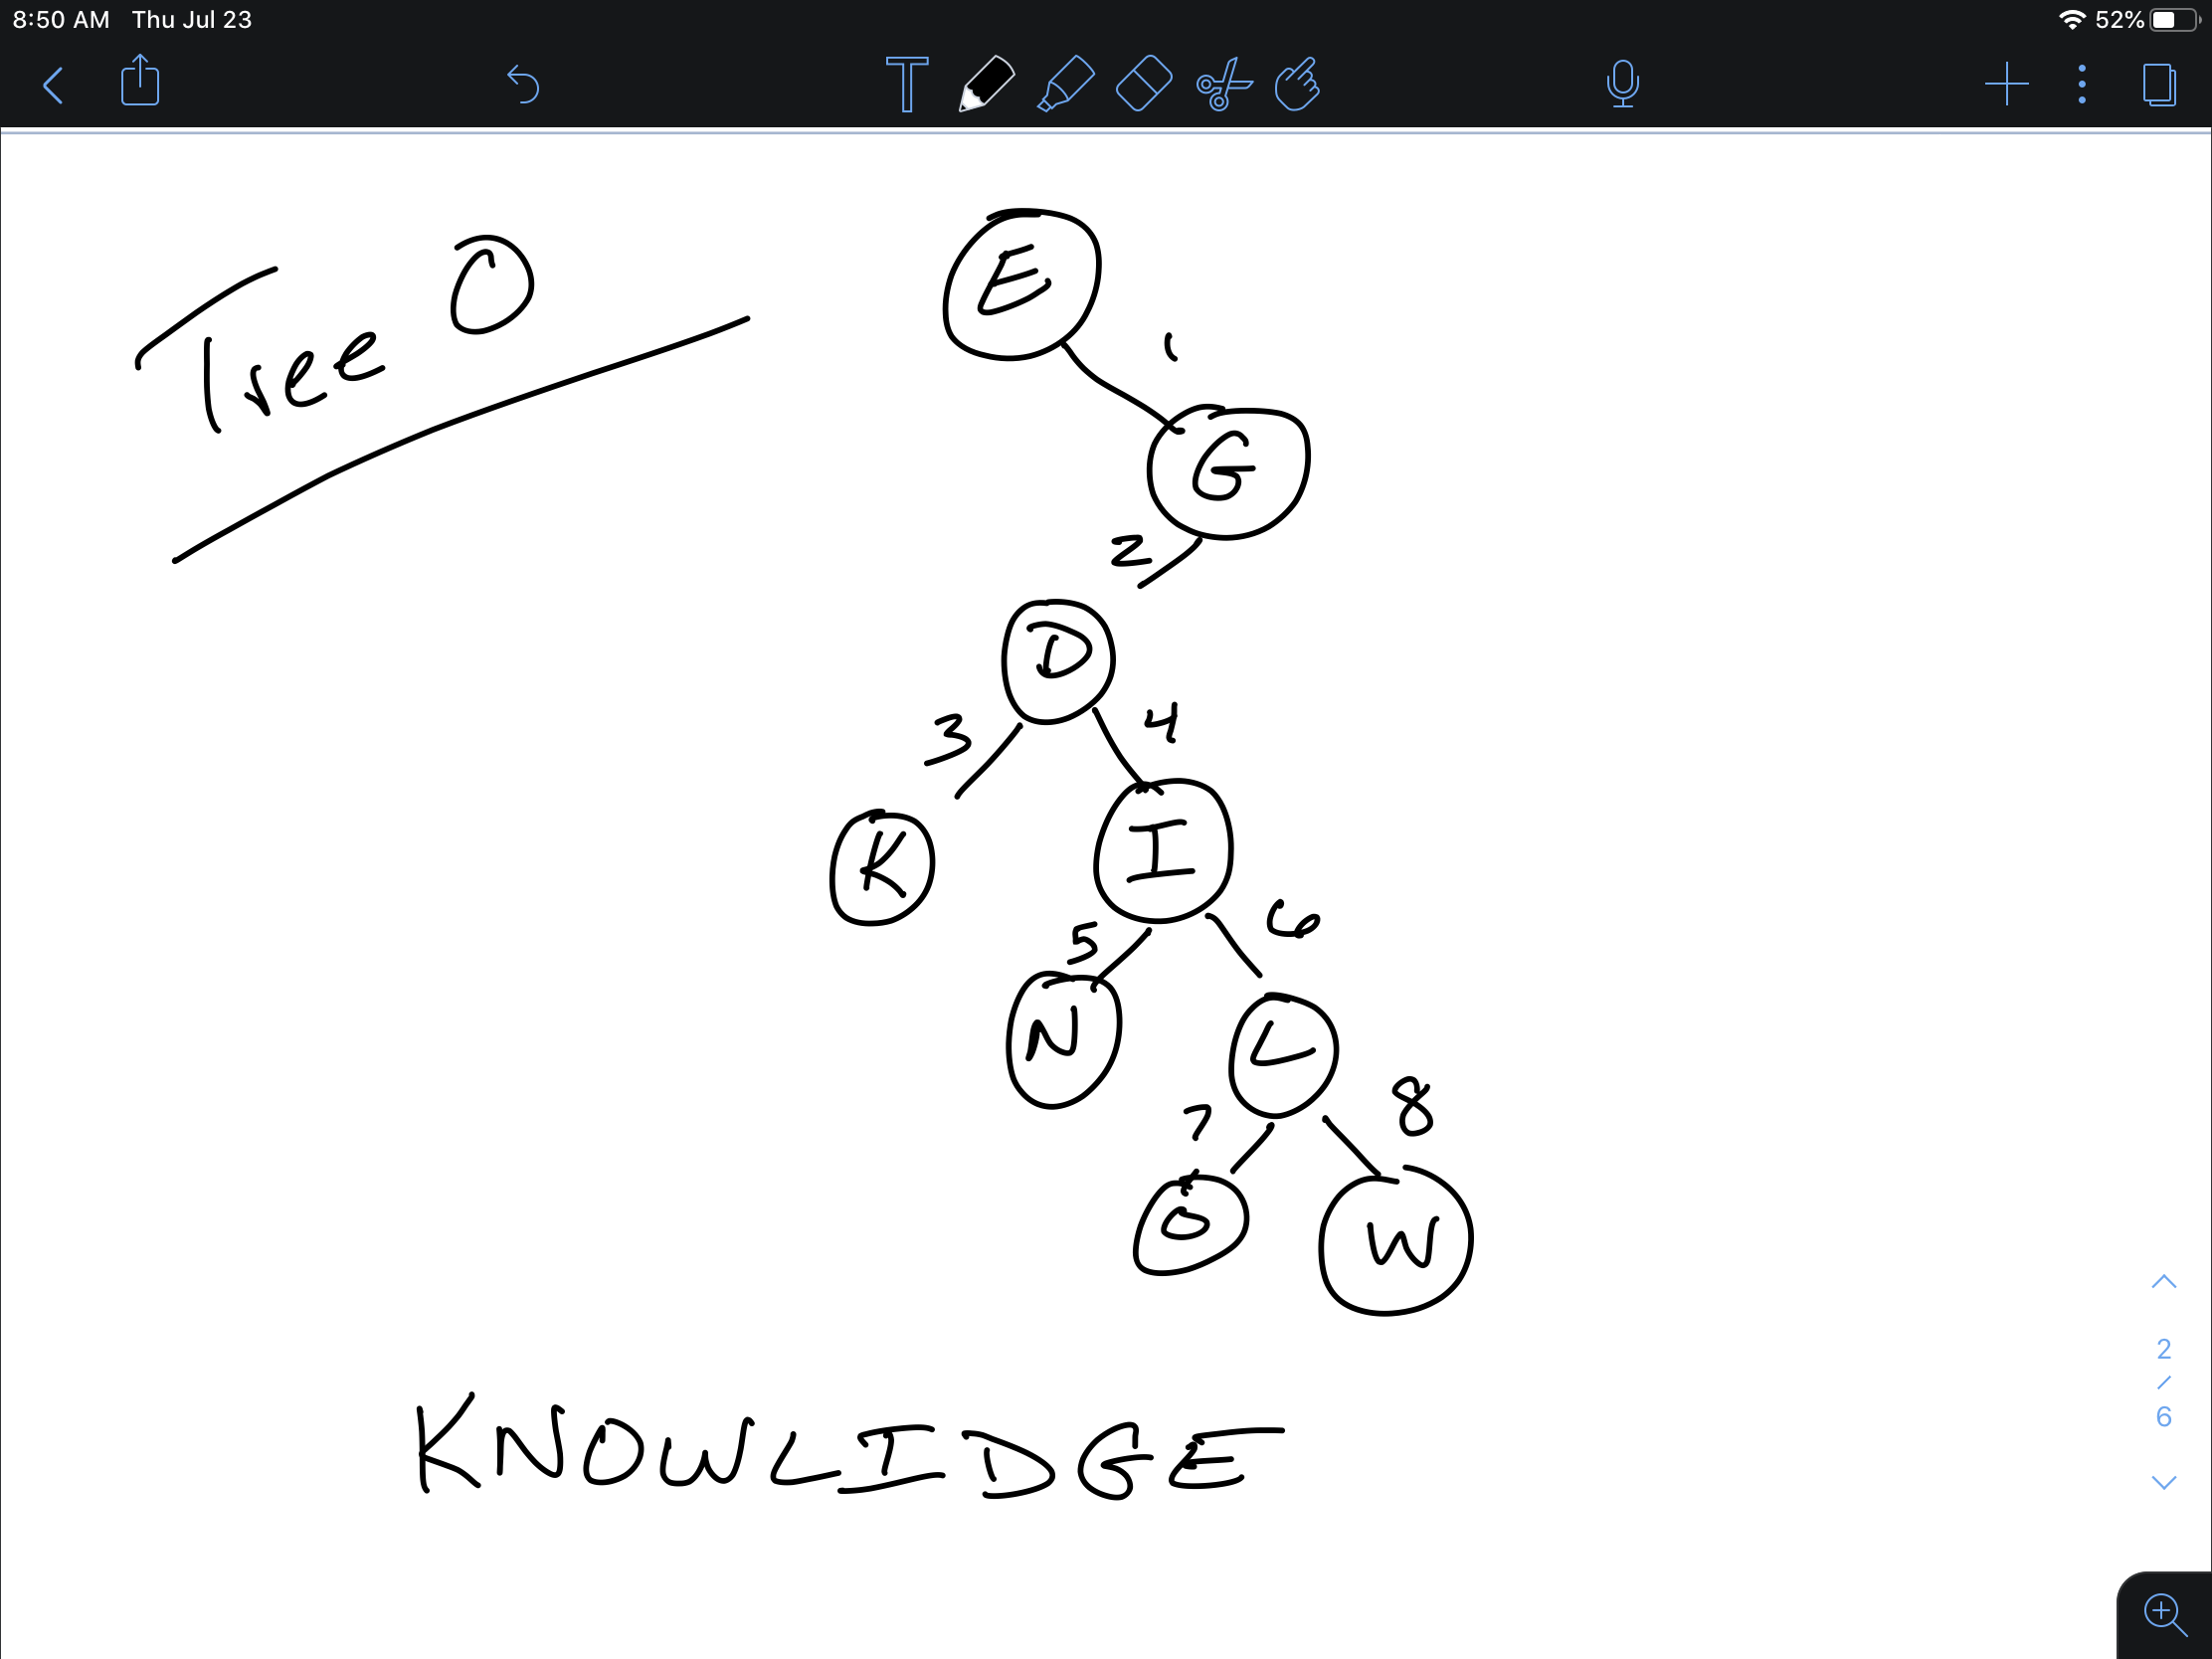 8:50 AM Thu Jul 23 52%
T
Tree 0
E
1
G
2
D
3 4
K I
5 6
N L
7 8
O W
KNOWLIDGE
2
/
6